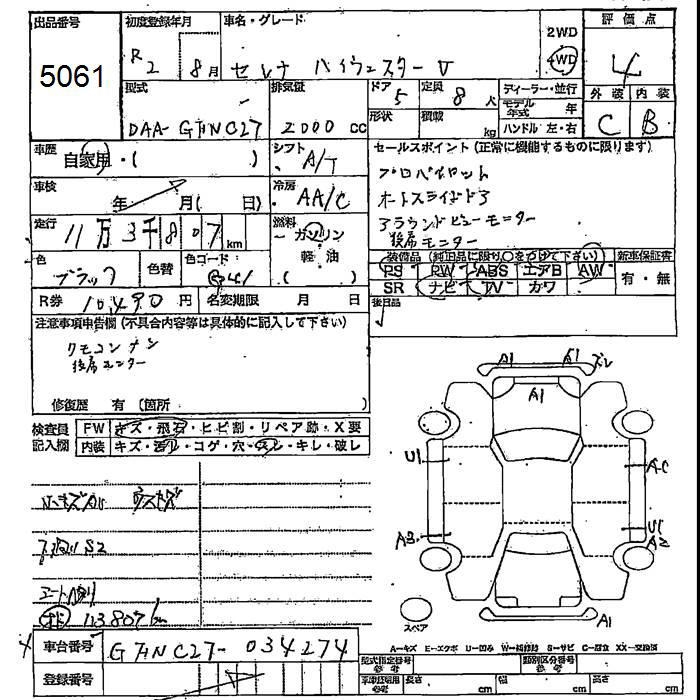 出品番号 初度登録年月 車名・グレード 評価点
5061
R2 8月 セレナ ハイウェスター V
2WD
4WD
4
型式 排気量 ドア 5 定員 8 人
ディーラー・並行
外装 内装
DAA-GFNC27 2000 cc
形状 積載 kg
モデル年式 年
ハンドル 左・右
C B
車歴 自家用・( )
シフト A/T
セールスポイント (正常に機能するものに限ります)
プロパイロット
オートスライドドア
アラウンドビューモニター
後席モニター
車検 年 月( 日)
冷房 AA/C
走行 11万3千807 km
燃料 ガソリン
軽油
( )
色 ブラック 色替 色コード
装備品 (純正品に限り○をつけて下さい) 新車保証書
PS PW ABS エアB AW
有・無
SR ナビ TV カワ
R券 10,490 円 名変期限 月 日
後日品
注意事項申告欄 (不具合内容等は具体的に記入して下さい)
リモコンナシ
後席モニター
修復歴 有 (箇所 )
検査員記入欄 FW キズ・飛石・ヒビ割・リペア跡・X要
内装 キズ・汚れ・コゲ・穴・スレ・キレ・破レ
A1 A1 ズレ
A1
U1 AC
A3 U1
A2
A1
スペア
113807km
A-キズ E-エクボ U-凹み W-補修跡 S-サビ C-腐食 XX-交換済
車台番号 GFNC27-034274
登録番号
型式指定番号 参考 類別区分番号 参考
車庫証明用 参考 長さ cm 幅 cm 高さ cm